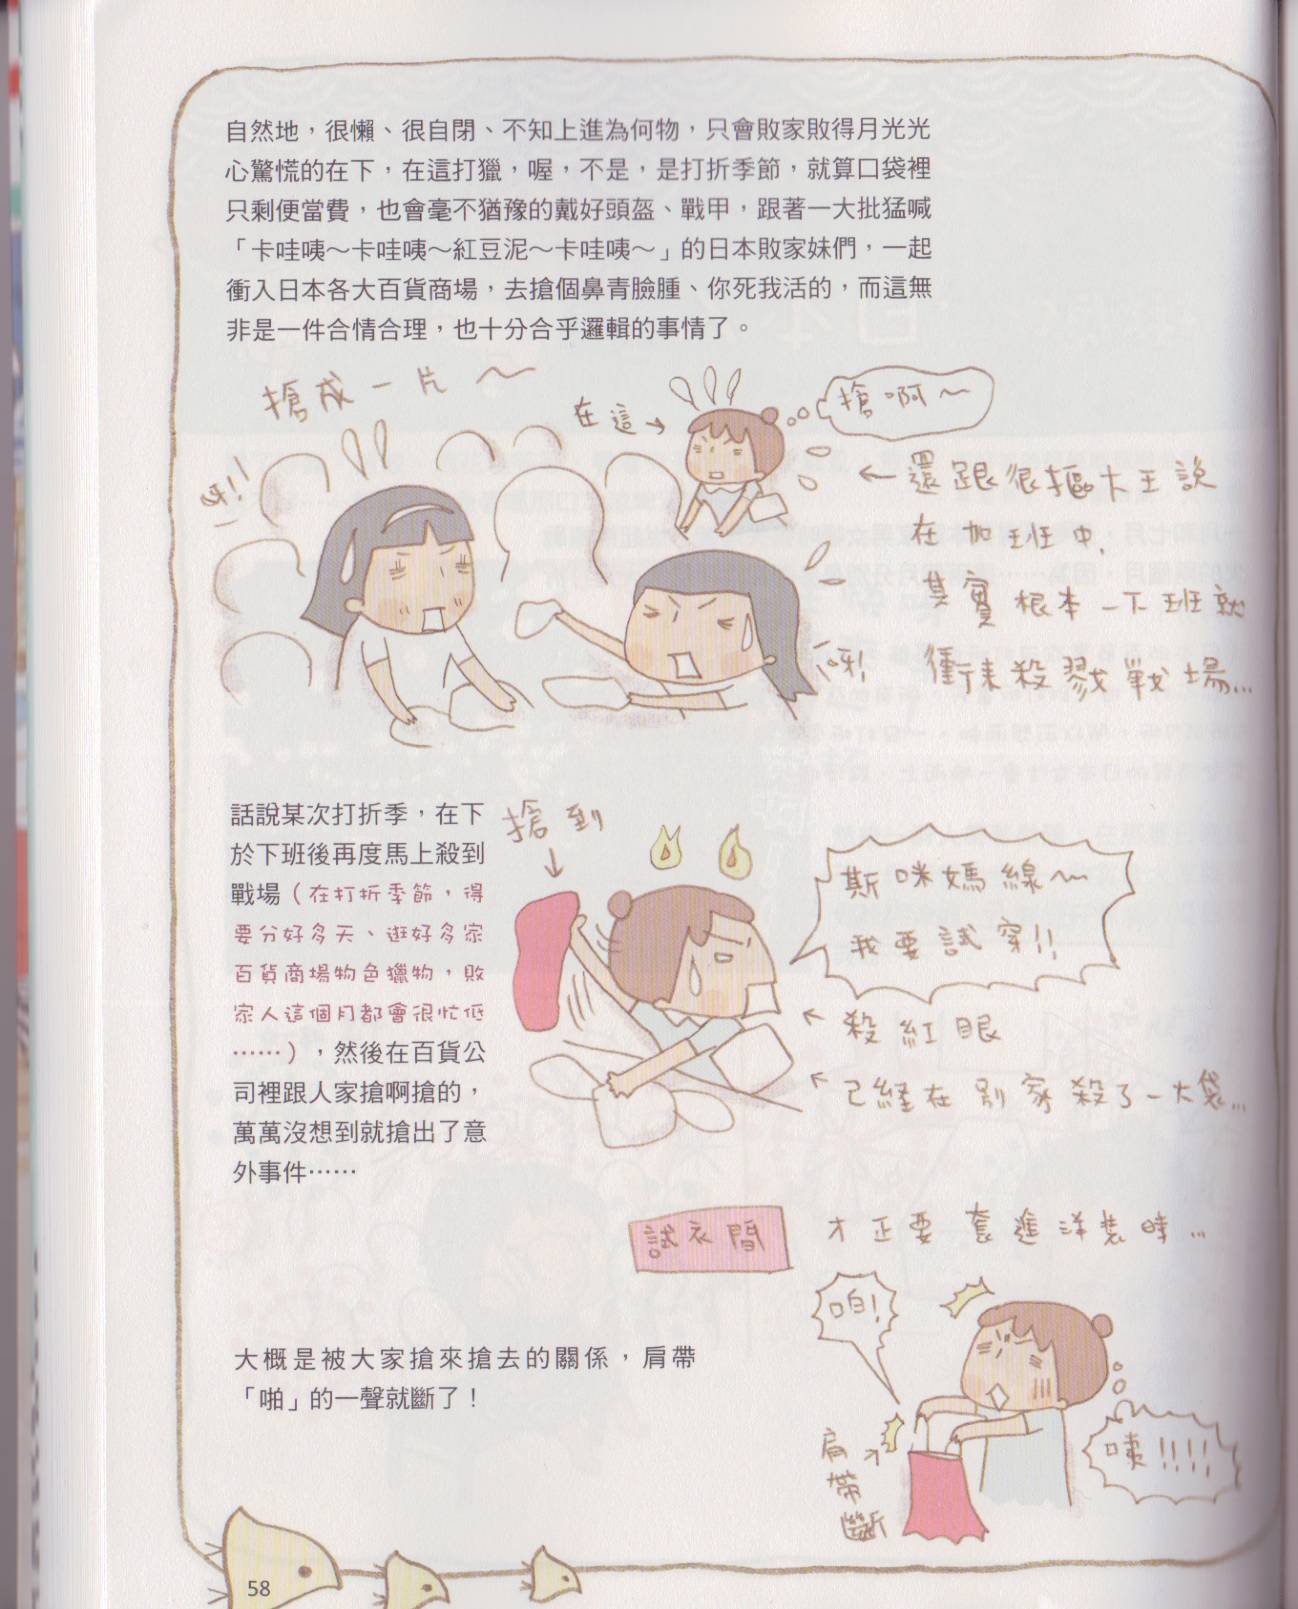 自然地，很懶、很自閉、不知上進為何物，只會敗家敗得月光光
心驚慌的在下，在這打獵，喔，不是，是打折季節，就算口袋裡
只剩便當費，也會毫不猶豫的戴好頭盔、戰甲，跟著一大批猛喊
「卡哇咦～卡哇咦～紅豆泥～卡哇咦～」的日本敗家妹們，一起
衝入日本各大百貨商場，去搶個鼻青臉腫、你死我活的，而這無
非是一件合情合理，也十分合乎邏輯的事情了。
搶成一片～
在這→
搶啊～
呀!!
←還跟很摳大王說
在加班中,
其實根本一下班就
衝來殺戮戰場...
呀!
話說某次打折季，在下
於下班後再度馬上殺到
戰場（在打折季節，得
要分好多天、逛好多家
百貨商場物色獵物，敗
家人這個月都會很忙低
……），然後在百貨公
司裡跟人家搶啊搶的，
萬萬沒想到就搶出了意
外事件……
搶到
↓
斯咪媽線～
我要試穿!!
↖殺紅眼
↖已經在別家殺了一大袋...
試衣間
才正要套進洋裝時...
啪!
大概是被大家搶來搶去的關係，肩帶
「啪」的一聲就斷了！
肩帶斷↗
咦!!!!
58